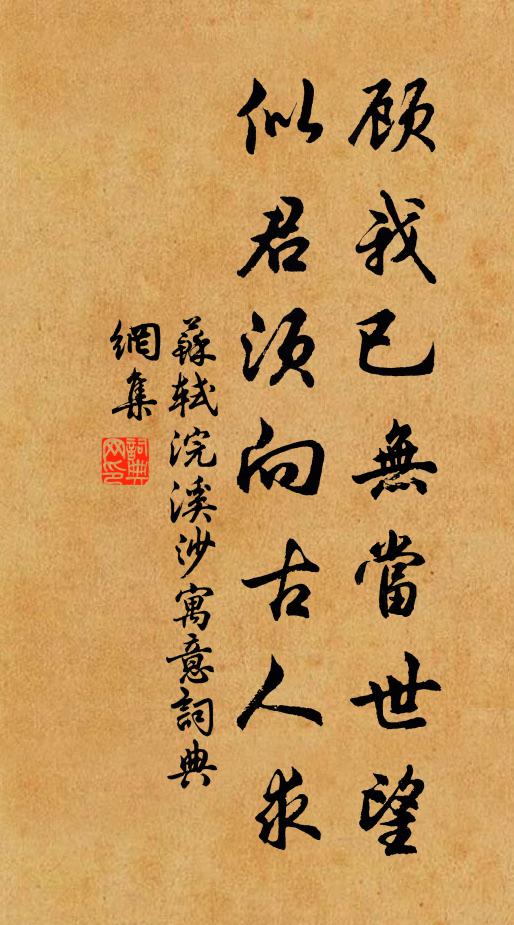 顾我已無當世望
似君须向古人求
蘇軾浣溪沙寓意詞典
網集
詞典網印